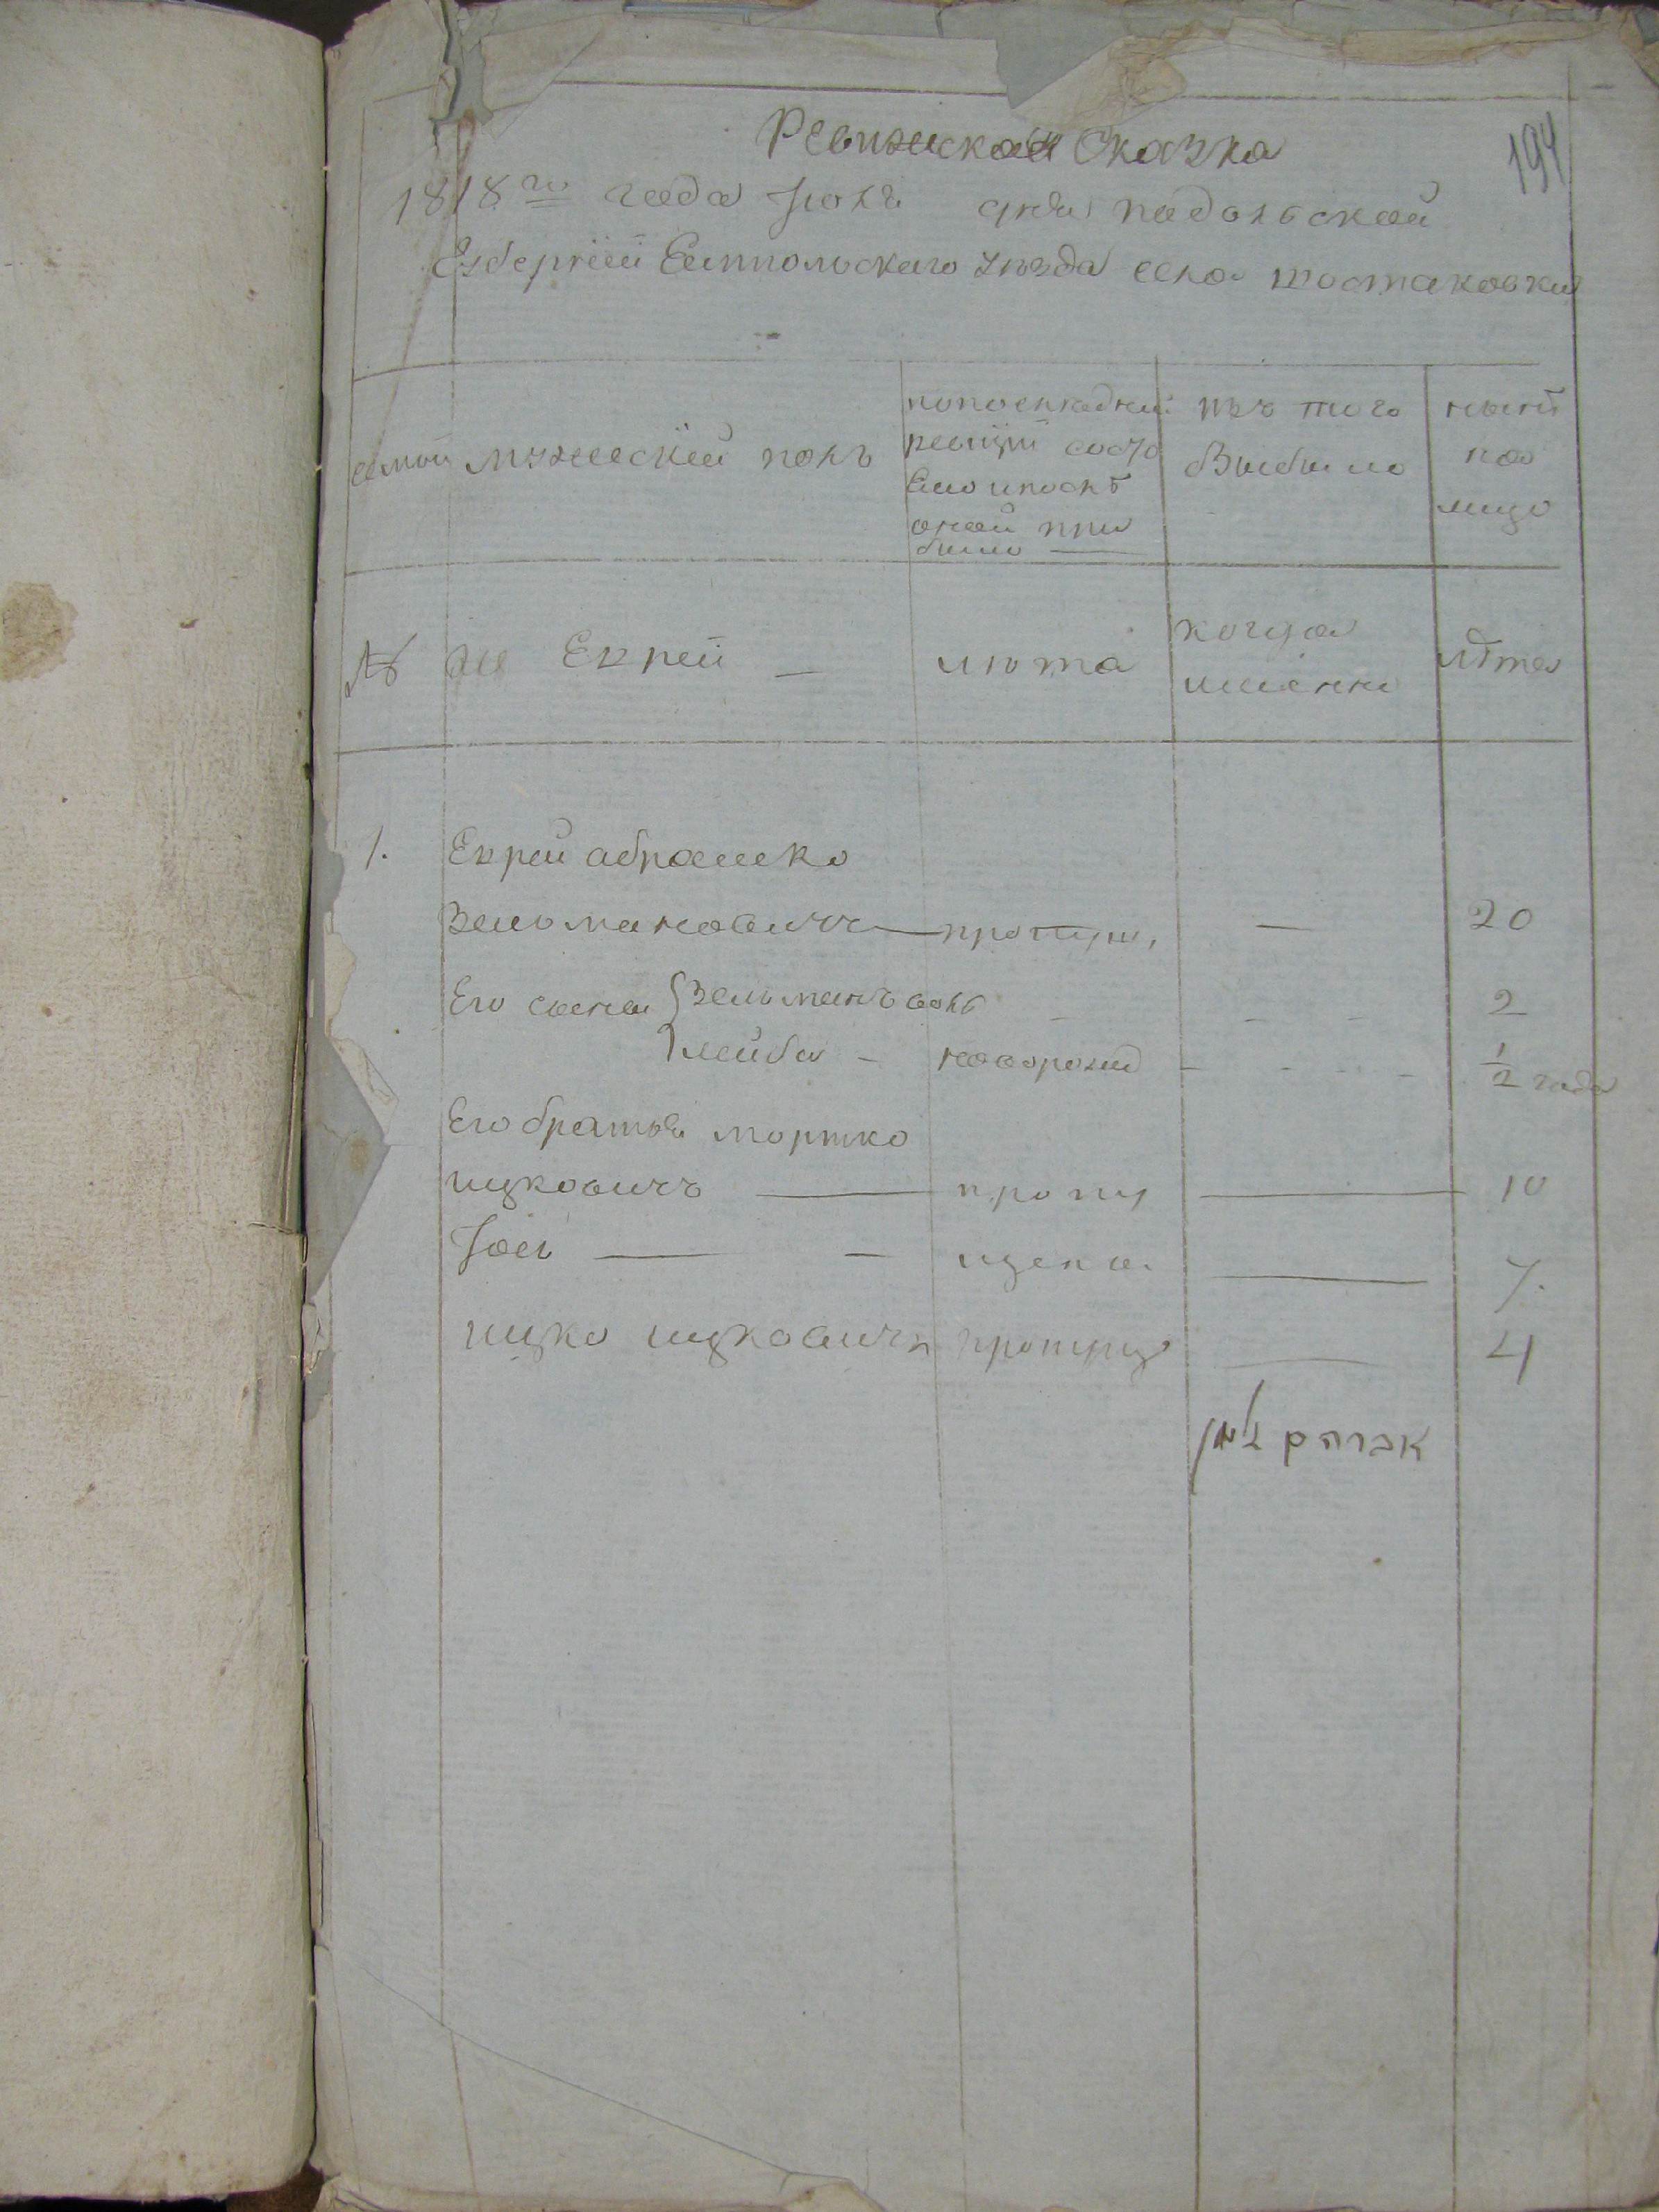 Ревижская Сказка
194
1818го года Июля дня подольской
Губернии Ямпольскаго уезда села шостаковки
семьи
мужеский полъ
попоследней
ревизии состо
яло и после
оной при
было
изъ того
выбыло
ныне
на
лицо
№
Еврей
люта
когда
имянно
лета
1.
Еврей абрамко
Зельмановичъ
пропущ.
20
Его сыны Зельманъ воль
2
лейба
новорожд
1/2 года
Его братья мортко
ицковичъ
пропу
10
Иось
7.
ицко ицковичъ
пропущ
4
אברהם זלמן